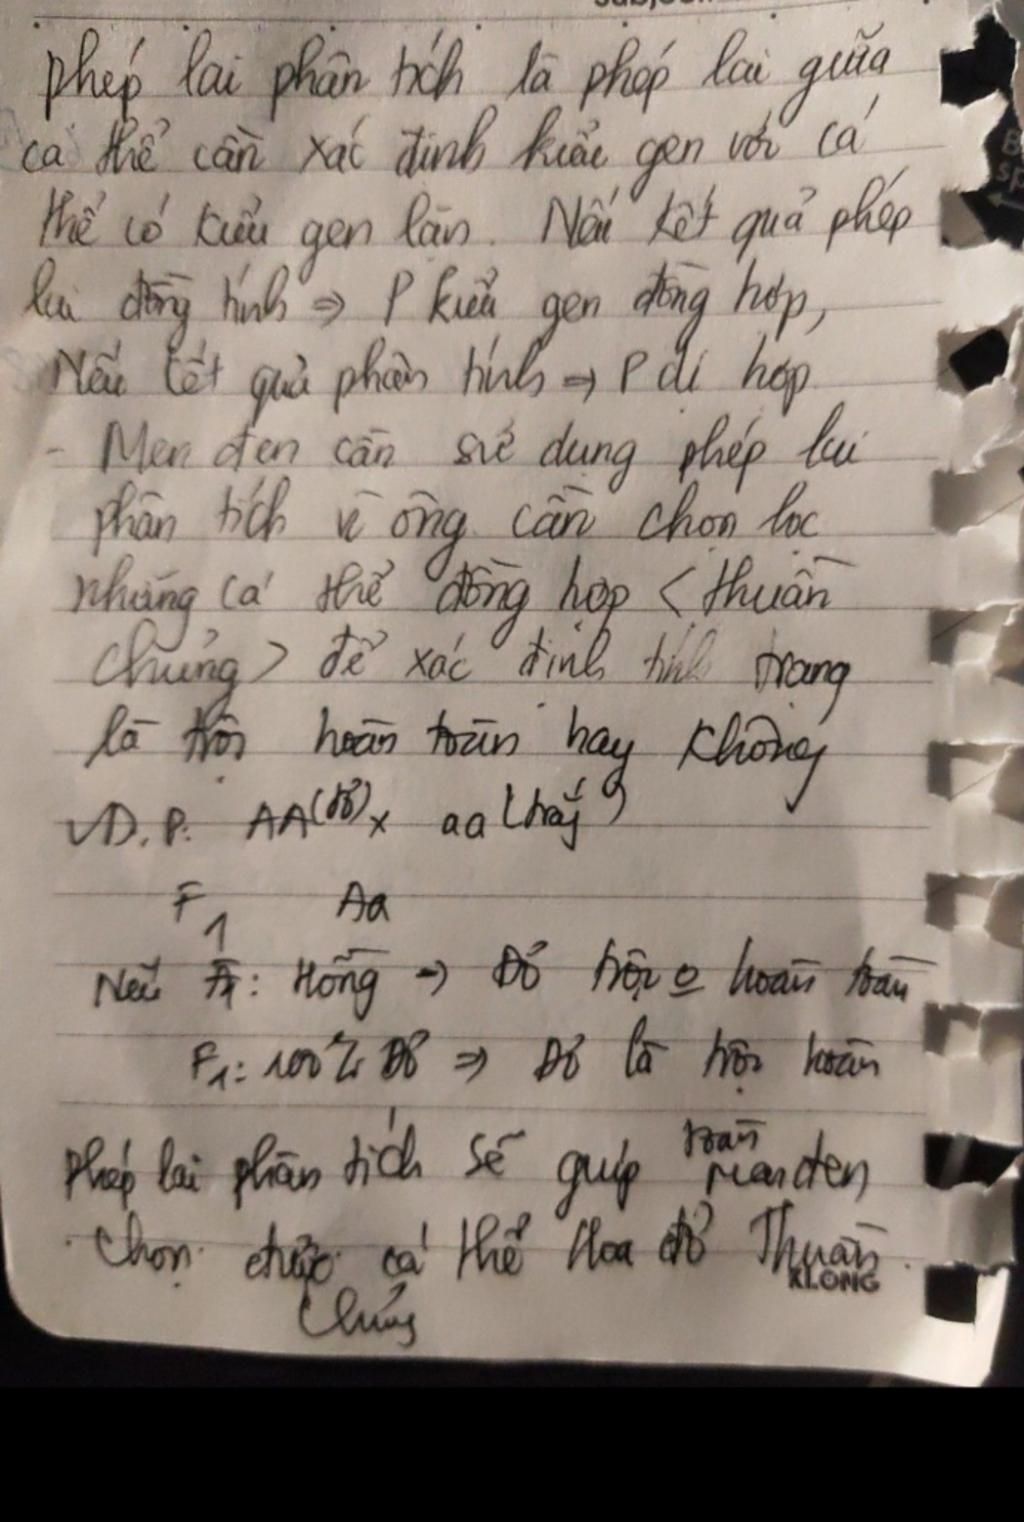 phép lai phân tích là phép lai giữa
cá thể cần xác định kiểu gen với cá
thể có kiểu gen lặn. Nếu kết quả phép
lai đồng tính => P kiểu gen đồng hợp,
Nếu kết quả phân tính => P dị hợp
- Men đen cần sử dụng phép lai
phân tích vì ông cần chọn lọc
những cá thể đồng hợp < thuần
chủng > để xác định tính trạng
là trội hoàn toàn hay không
VD. P: AA (đỏ) x aa (trắng)
F1 Aa
Nếu F1: Hồng -> Đỏ trội o hoàn toàn
F1: 100% Đỏ => Đỏ là trội hoàn
toàn
Phép lai phân tích sẽ giúp manđen
chọn được cá thể Hoa đỏ Thuần
KLONG
Chủng